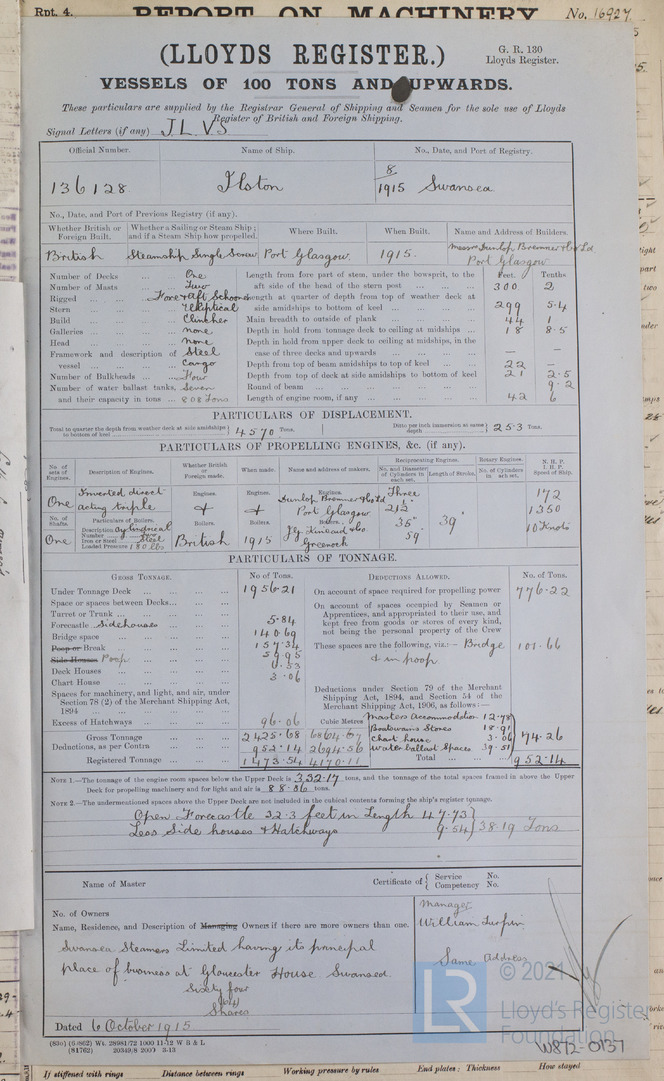 Rpt. 4. REPORT ON MACHINERY No. 16927
(LLOYDS REGISTER.)
G. R. 130
Lloyds Register.
VESSELS OF 100 TONS AND UPWARDS.
These particulars are supplied by the Registrar General of Shipping and Seamen for the sole use of Lloyds
Register of British and Foreign Shipping.
Signal Letters (if any) J.L.V.S
Official Number. Name of Ship. No., Date, and Port of Registry.
136128 Ilston 8/1915 Swansea
No., Date, and Port of Previous Registry (if any).
Whether British or Foreign Built. Whether a Sailing or Steam Ship; and if a Steam Ship how propelled. Where Built. When Built. Name and Address of Builders.
British Steamship Single Screw Port Glasgow 1915. Messrs Dunlop Bremner & Co Ld
Port Glasgow
Feet. Tenths
Number of Decks ... One Length from fore part of stem, under the bowsprit, to the
Number of Masts ... Two aft side of the head of the stern post ... 300 2
Rigged ... Fore & Aft Schooner Length at quarter of depth from top of weather deck at
Stern ... Elliptical side amidships to bottom of keel ... 299 5.4
Build ... Clincher Main breadth to outside of plank ... 44 1
Galleries ... none Depth in hold from tonnage deck to ceiling at midships ... 18 8.5
Head ... none Depth in hold from upper deck to ceiling at midships, in the
Framework and description of Steel case of three decks and upwards ... — —
vessel ... Cargo Depth from top of beam amidships to top of keel ... 22 —
Number of Bulkheads ... Four Depth from top of deck at side amidships to bottom of keel 21 2.5
Number of water ballast tanks, Seven Round of beam ... 9.2
and their capacity in tons ... 808 Tons Length of engine room, if any ... 42 6
PARTICULARS OF DISPLACEMENT.
Total to quarter the depth from weather deck at side amidships to bottom of keel } 4570 Tons. Ditto per inch immersion at same depth } 25.3 Tons.
PARTICULARS OF PROPELLING ENGINES, &c. (if any).
No. of sets of Engines. Description of Engines. Whether British or Foreign made. When made. Name and address of makers. Reciprocating Engines. Rotary Engines. N. H. P.
No. and Diameter of Cylinders in each set. Length of Stroke. No. of Cylinders in each set. I. H. P.
Speed of Ship.
One Inverted direct acting triple Engines. Engines. Engines. Dunlop Bremner & Co Ld Port Glasgow Three 21½" 35" 59 39" 172
1350
10 Knots
No. of Shafts. Particulars of Boilers. Boilers. Boilers. Boilers.
One Description Cylindrical
Number
Iron or Steel Steel
Loaded Pressure 180 lbs British 1915 J.G. Kincaid & Co
Greenock
PARTICULARS OF TONNAGE.
GROSS TONNAGE. No of Tons. DEDUCTIONS ALLOWED. No. of Tons.
Under Tonnage Deck ... 1956.21 On account of space required for propelling power 776.22
Space or spaces between Decks ... On account of spaces occupied by Seamen or
Turret or Trunk ... Apprentices, and appropriated to their use, and
Forecastle Sidehouses ... 5.84 kept free from goods or stores of every kind,
Bridge space ... 140.69 not being the personal property of the Crew
Poop or Break ... 157.34 These spaces are the following, viz.:— Bridge 101.66
Side Houses Poop ... 59.95 & in poop
Deck Houses ...
Chart House ... 3.06
Spaces for machinery, and light, and air, under Deductions under Section 79 of the Merchant
Section 78 (2) of the Merchant Shipping Act, Shipping Act, 1894, and Section 54 of the
1894 ... Merchant Shipping Act, 1906, as follows:—
Excess of Hatchways ... 96.06 Cubic Metres Masters Accommodation 12.78
Boatswains Stores 18.91
Gross Tonnage 2425.68 6864.67 Chart house 3.06
Deductions, as per Contra 952.14 2694.56 Water ballast Spaces 39.51 74.26
Registered Tonnage 1473.54 4170.11 Total ... 952.14
NOTE 1.—The tonnage of the engine room spaces below the Upper Deck is 332.17 tons, and the tonnage of the total spaces framed in above the Upper
Deck for propelling machinery and for light and air is 88.06 tons.
NOTE 2.—The undermentioned spaces above the Upper Deck are not included in the cubical contents forming the ship's register tonnage.
Open Forecastle 32.3 feet in Length 47.73
Less Side houses & Hatchways 9.54 } 38.19 Tons
Name of Master Certificate of { Service No.
Competency No.
No. of Owners
Name, Residence, and Description of Managing Owners if there are more owners than one.
Manager
William Turpin
Same Address
Swansea Steamers Limited having its principal
place of business at Gloucester House Swansea
Sixty four
Shares
Dated 6 October 1915
(830) (53862) Wt. 28981/72 1000 11-12 W B & L
(81762) 20349/8 2000 3-13
LR © 2021
Lloyd's Register
Foundation
W872-0137
If stiffened with rings Distance between rings Working pressure by rules End plates; Thickness How stayed